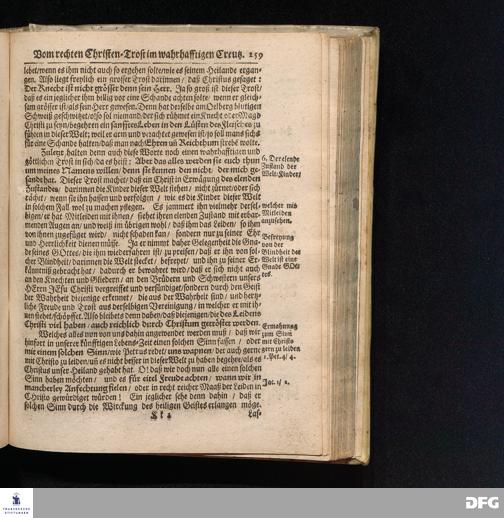 Vom rechten Christen-Trost im wahrhafftigen Creutz. 159
lebet/wenn es ihm nicht auch so ergehen solte/wie es seinem Heilande ergan-
gen. Also liegt freylich ein grosser Trost darinnen/ daß Christus gesaget:
Der Knecht ist nicht grösser denn sein Herr. Ja so groß ist dieser Trost/
daß es ein jeglicher ihm billig vor eine Schande achten solte/ wenn er gleich-
sam grösser ist/als sein Herr gewesen. Denn hat derselbe am Oelberg blutigen
Schweiß geschwitzet/also sol niemand/der sich rühmet ein Knecht oder Magd
Christi zu seyn/begehren ein sanfftes Leben in den Lüsten des Fleisches zu
führen in dieser Welt; weil er arm und verachtet gewesen ist/so soll mans sichs
für eine Schande halten/daß man nach Ehren uñ Reichthum strebē wolte.
Zuletzt halten denn auch diese Worte noch einen wahrhafftigen und
göttlichen Trost in sich/da es heist: Aber das alles werden sie euch thun
um meines Namens willen/ denn sie kennen den nicht/ der mich ge-
sandt hat. Dieser Trost machet/ daß ein Christ in Erwägung des elenden
Zustandes/ darinnen die Kinder dieser Welt stehen/ nicht zürnet/oder sich
rächet/ wenn sie ihn hassen und verfolgen/ wie es die Kinder dieser Welt
in solchem Fall wol zu machen pflegen. Es jammert ihn vielmehr dersel-
bigen/ er hat Mitleiden mit ihnen/ siehet ihren elenden Zustand mit erbar-
menden Augen an/ und weiß im übrigen wohl/ daß ihm das Leiden/ so ihm
von ihnen zugefüget wird/ nicht schaden kan/ sondern nur zu seiner Ehr
und Herrlichkeit dienen müsse. Ja er nimmt daher Gelegenheit die Gna-
de seines GOttes/ die ihm wiederfahren ist/ zu preisen/ daß er ihn von sol-
cher Blindheit/ darinnen die Welt stecket/ befreyet/ und ihn zu seiner Er-
käntniß gebracht hat/ dadurch er bewahret wird/ daß er sich nicht auch
an den Knechten und Gliedern/ an den Brüdern und Schwestern unsers
HErrn JEsu Christi vergreiffet und versündiget/sondern durch den Geist
der Wahrheit diejenige erkennet/ die aus der Wahrheit sind/ und hertz-
liche Freude und Trost aus derselbigen Vereinigung/ in welcher er mit ih-
nen stehet/schöpffet. Also bleibets denn dabey/daß diejenigen/die des Leidens
Christi viel haben/ auch reichlich durch Christum getröstet werden.
Welches alles nun von uns dahin angewendet werden muß/ daß wir
hinfort in unserer künfftigen Lebens-Zeit einen solchen Sinn fassen/ oder
mit einem solchen Sinn/wie Petrus redet/ uns wapnen/ der auch gerne
mit Christo zu leiden/uñ es nicht besser in dieser Welt zu haben begehre/als es
Christus unser Heiland gehabt hat. O! daß wir doch nun alle einen solchen
Sinn haben möchten/ und es für eitel Freude achten/ wann wir in
mancherley Anfechtung fielen/ oder in recht reicher Maaß der Leiden in
Christo gewürdiget würden! Ein jeglicher sehe denn dahin/ daß er
solchen Sinn durch die Wirckung des heiligen Geistes erlangen möge.
Las-
6. Der elende
Zustand der
Welt-Kinder/
welcher mit
Mitleiden
anzusehen.
Befreyung
von der
Blindheit der
Welt ist eine
Gnade GOt-
tes.
Ermahnung
zum Sinn
mit Christo
gern zu leiden
1. Pet. 4/ 4.
Jac. 1/ 2.
FRANCKESCHE
STIFTUNGEN
DFG